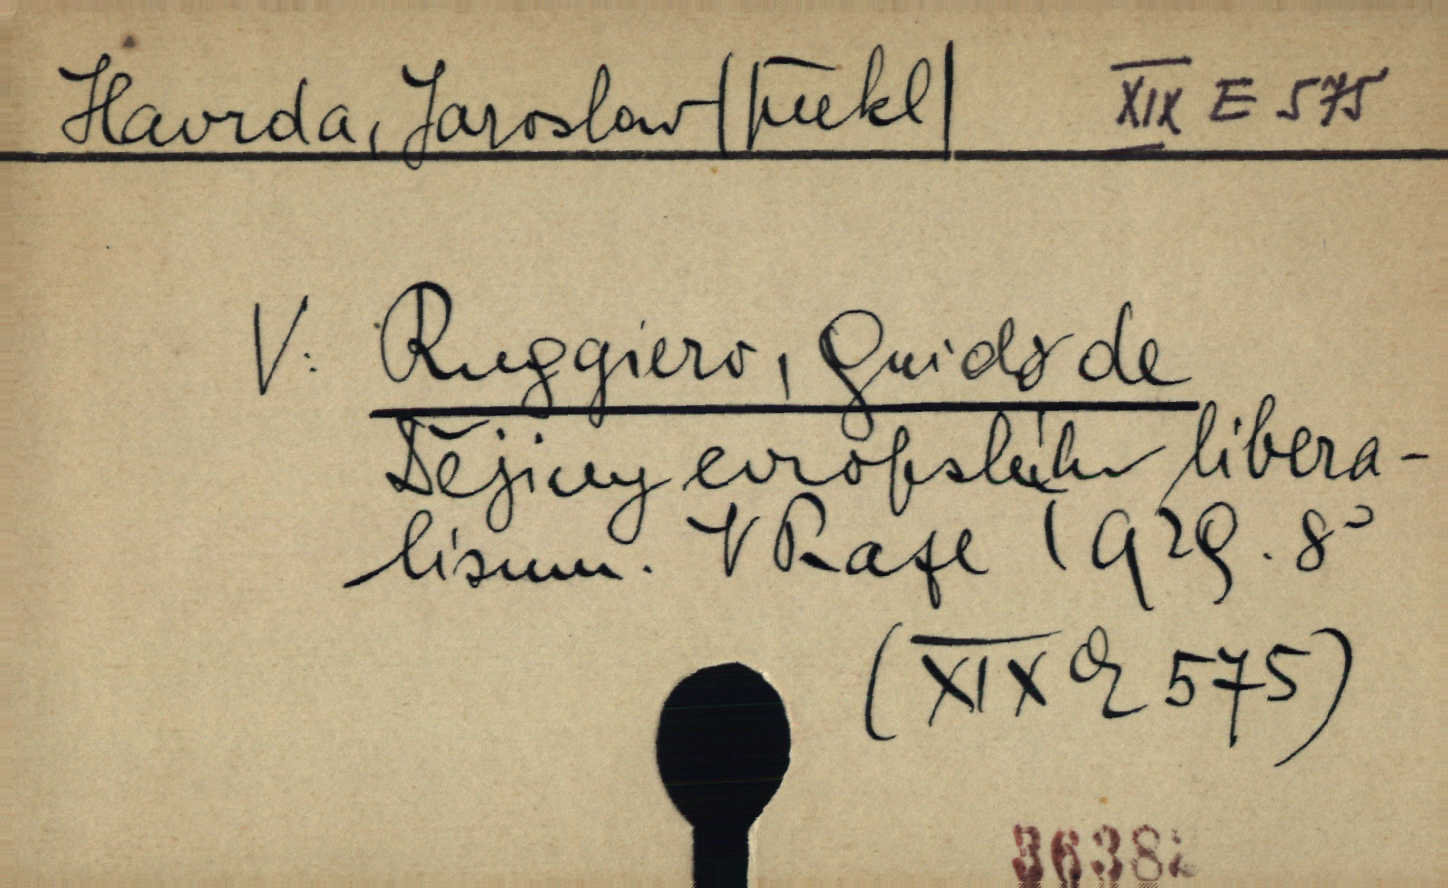 Havrda, Jaroslav (překl)
XIX E 575
V: Ruggiero, Guido de
Dějiny evropského libera-
lismu. V Praze 1929. 8°
(XIX E 575)
3638